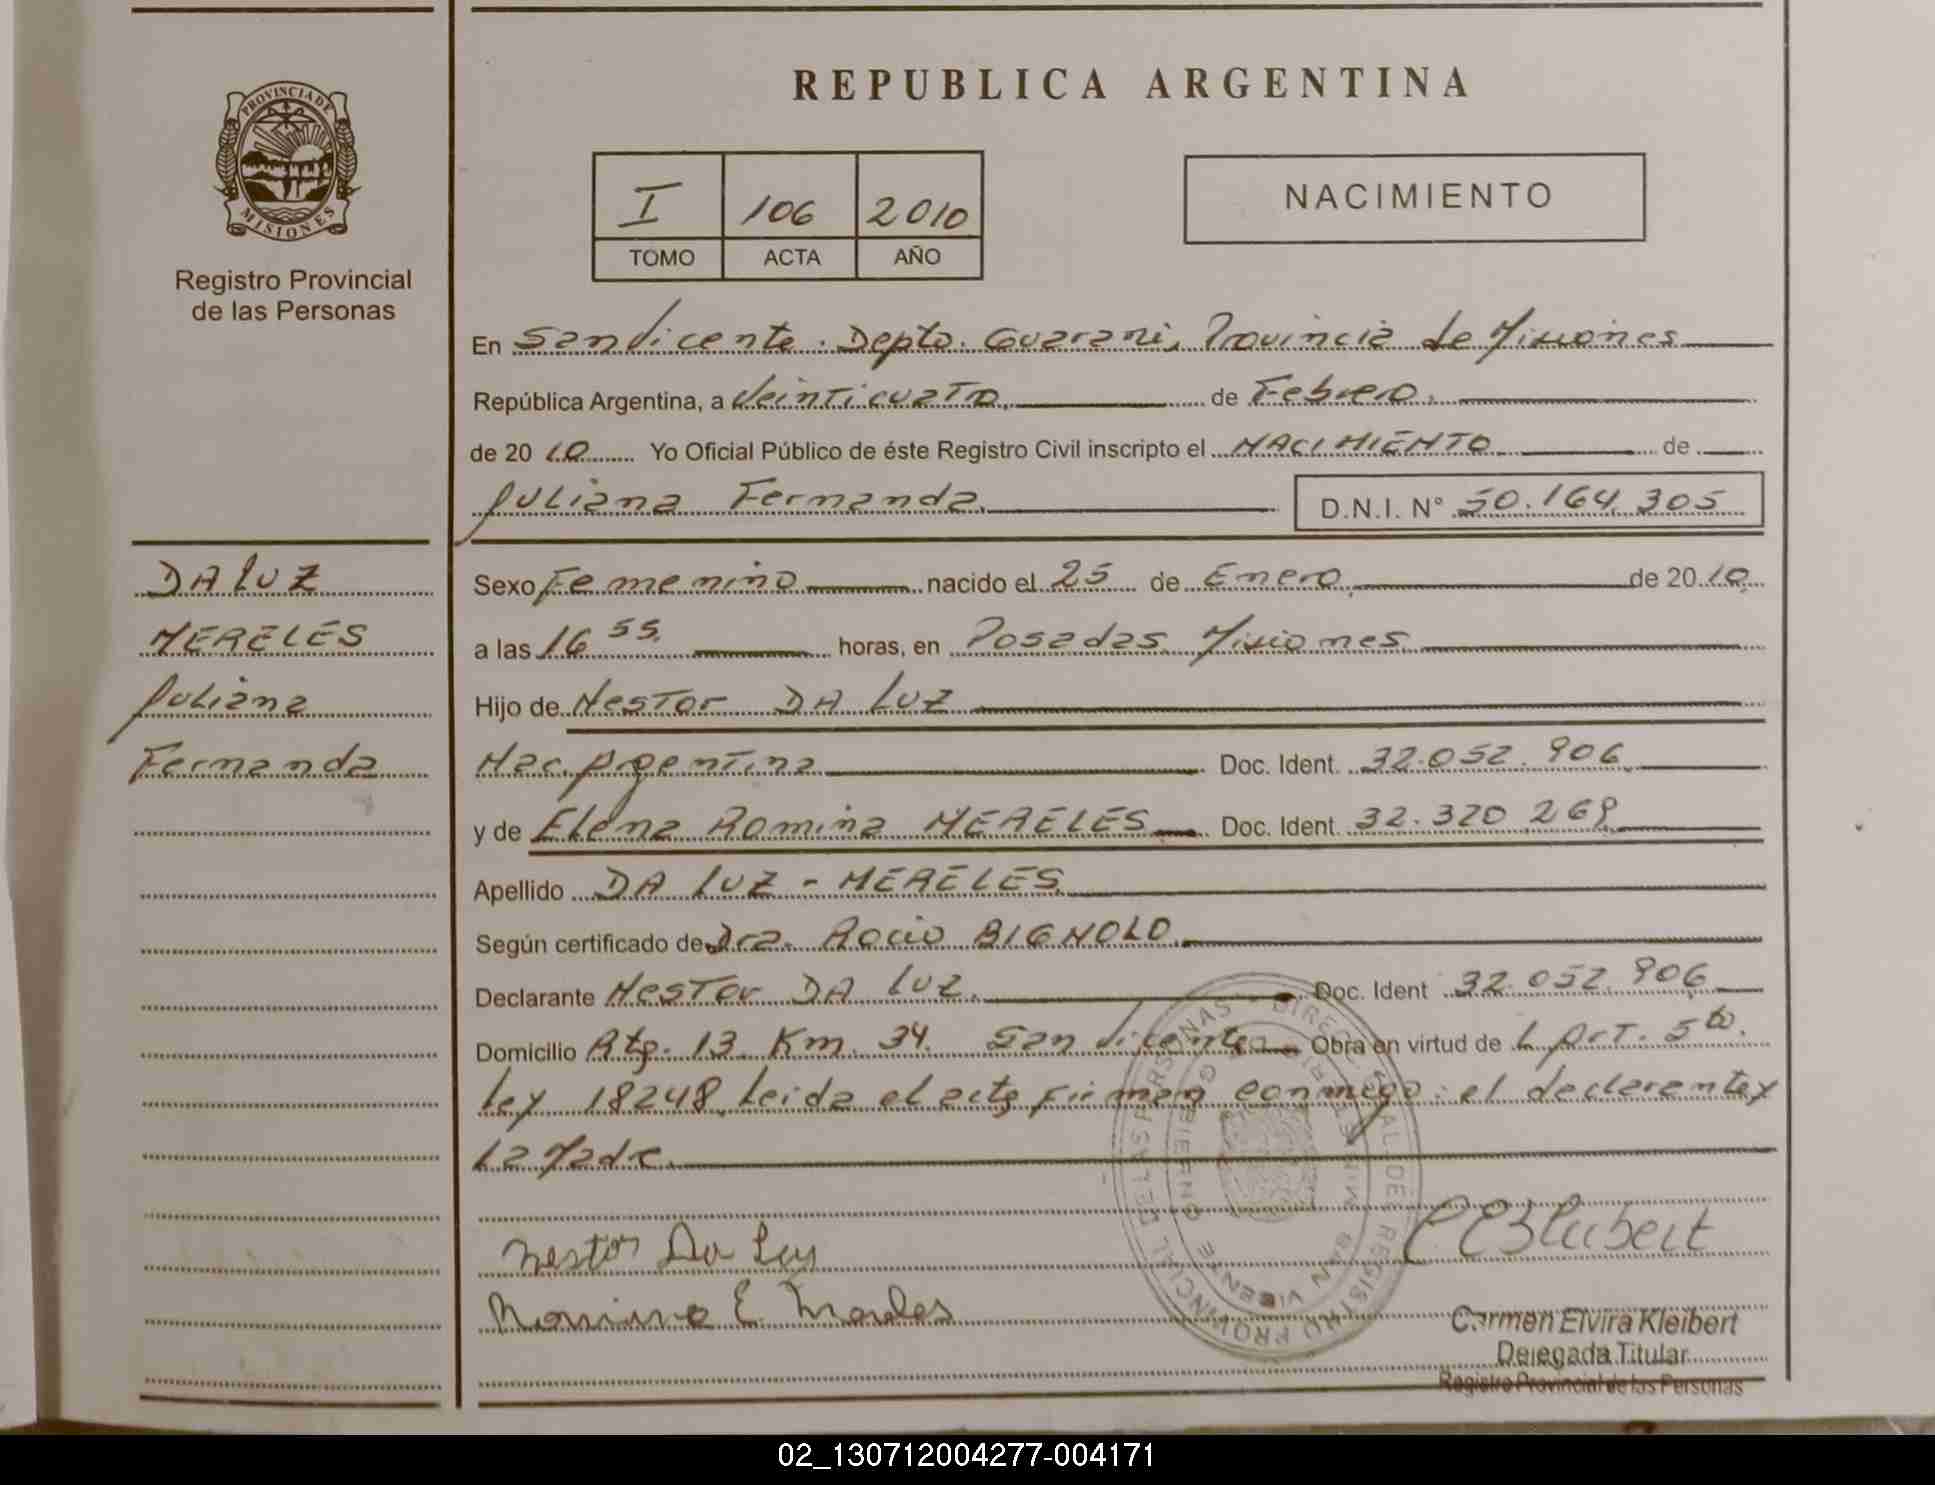 REPUBLICA ARGENTINA
PROVINCIA DE
MISIONES
Registro Provincial
de las Personas
I 106 2010
TOMO ACTA AÑO
NACIMIENTO
En San Vicente. Depto. Guarani, Provincia de Misiones
República Argentina, a Veinticuatro de Febrero.
de 2010 Yo Oficial Público de éste Registro Civil inscripto el NACIMIENTO de
Juliana Fernanda. D.N.I. N° 50.164.305
DA LUZ
MERELES
Juliana
Fernanda
Sexo Femenino nacido el 25 de Enero de 2010
a las 16 55 horas, en Posadas Misiones
Hijo de Nestor DA LUZ
Nac. Argentina Doc. Ident. 32.052.906
y de Elena Romina MERELES Doc. Ident. 32.320.269
Apellido DA LUZ - MERELES
Según certificado de Dra. Rocio BIGNOLO
Declarante Nestor DA LUZ. Doc. Ident 32.052.906
Domicilio Rta. 13 Km. 34. San Vicente Obra en virtud de L Art. 5to.
Ley 18248 Leida el acta firman conmigo: el declarante y
la Madre.
Nestor Da Luz
Romina E. Mereles
Carmen Elvira Kleibert
Delegada Titular
Registro Provincial de las Personas
02_130712004277-004171